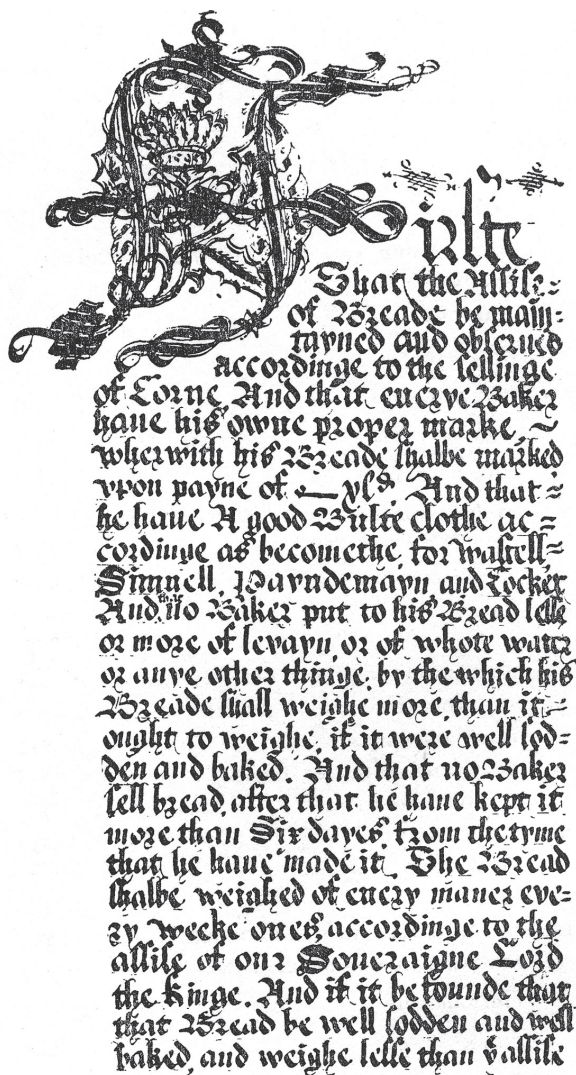 Firste
That the Assise=
of Breade be main=
tayned and observed
accordinge to the sellinge
of Corne And that euerye Baker
haue his owne proper marke ~
wherwith his Breade shalbe marked
vpon payne of And that =
he haue A good Bulte clothe ac=
cordinge as becomethe, for wastell=
Simnell, Payndemayn and Cocket
And that no Baker put to his Bread lesse
or more of levayn, or of whote water
or anye other thinge, by the which his
Breade shall weighe more, than it
ought to weighe, if it were well sod=
den and baked. And that no Baker
sell bread, after that he haue kept it
more than Six dayes from the tyme
that he haue made it. The Bread
shalbe weighed of euery maner eve=
ry weeke ones, accordinge to the
assise of our Soueraigne Lord
the Kinge. And if it be founde that
that Bread be well sodden and well
baked, and weighe lesse than yͤ assise